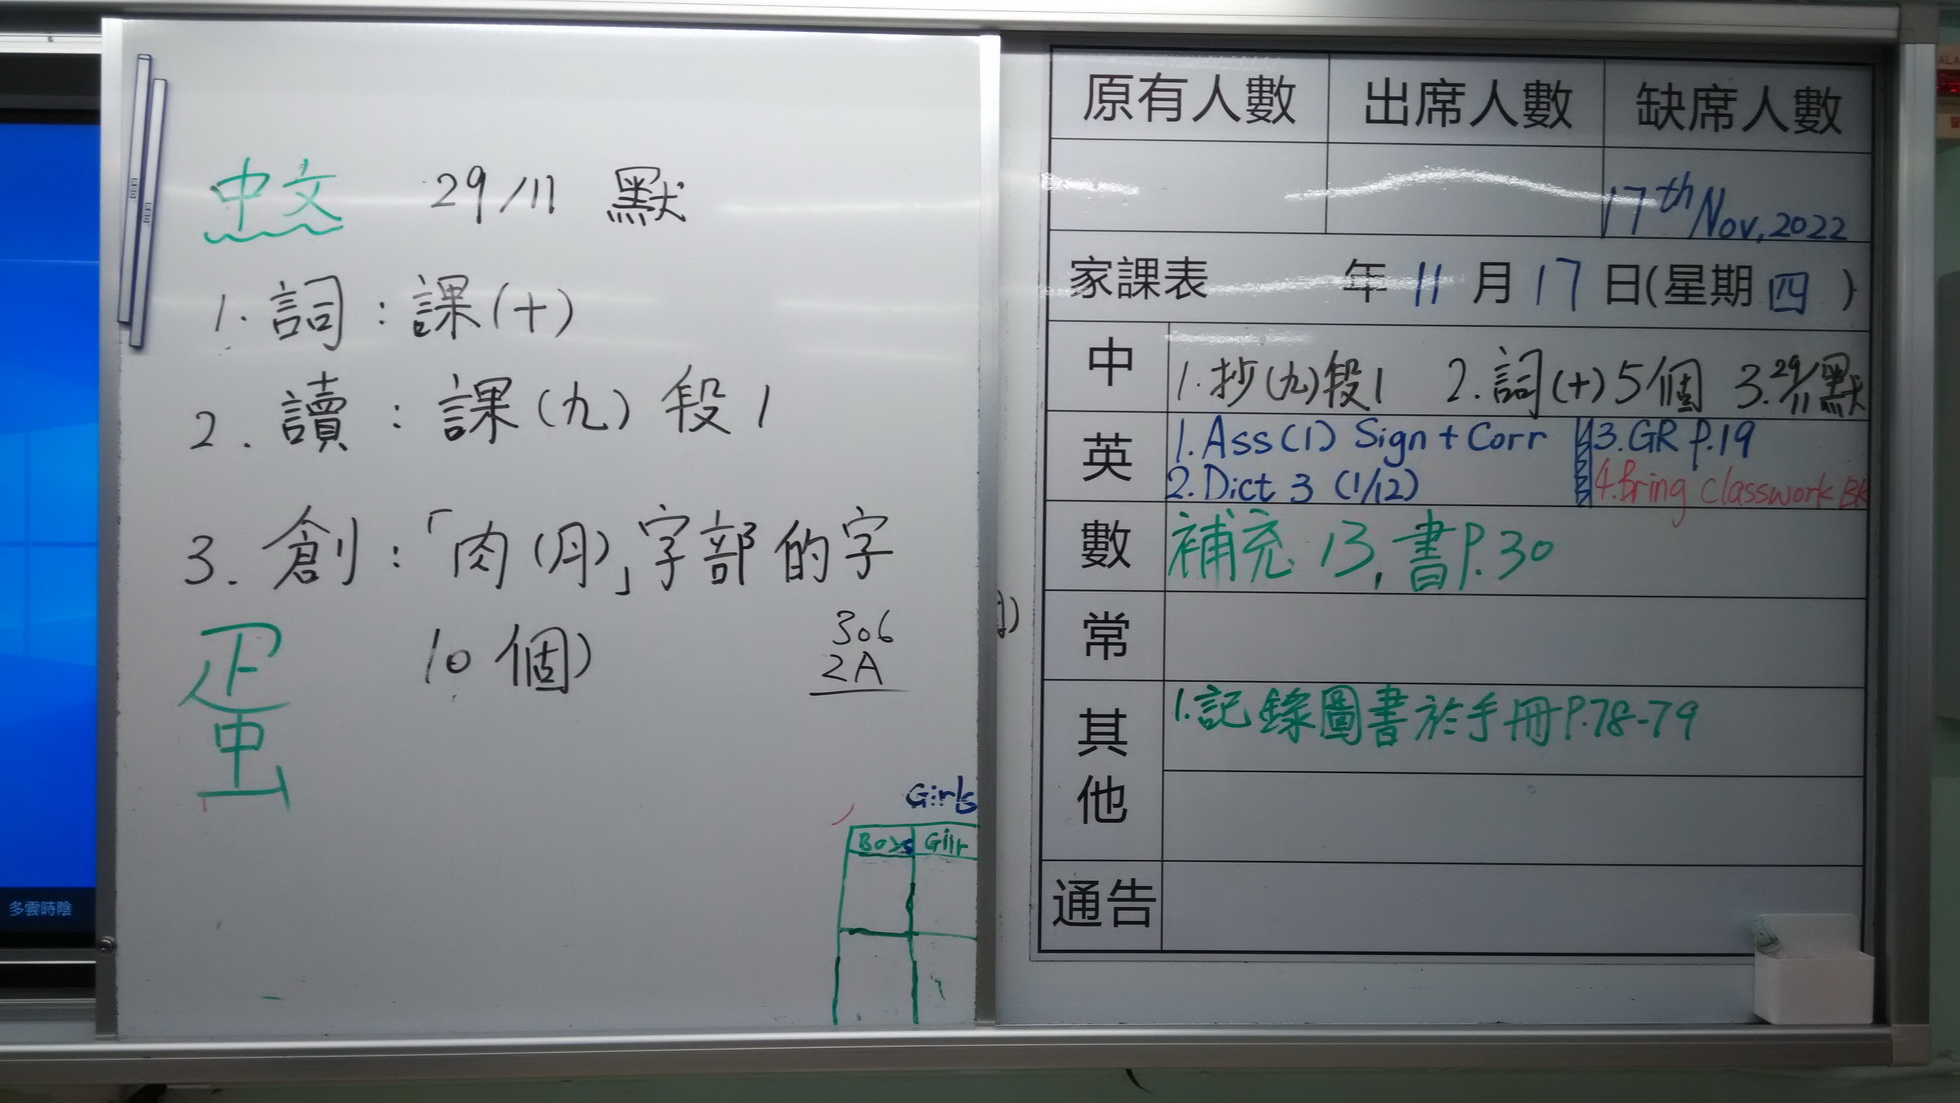 中文 29/11 默
1. 詞：課(十)
2. 讀：課(九) 段1
3. 創：「肉(月)」字部的字
10個)
306
2A
Girls
Boys
多雲時陰
原有人數 出席人數 缺席人數
17th Nov, 2022
家課表 年 11 月 17 日(星期 四 )
中 1. 抄(九)段1 2. 詞(十)5個 3. 29/11默
英 1. Ass(1) Sign + Corr 3. GR P.19
2. Dict 3 (1/12) 4. Bring classwork BK
數 補充 13, 書P.30
常
其他 1. 記錄圖書於手冊P.78-79
通告